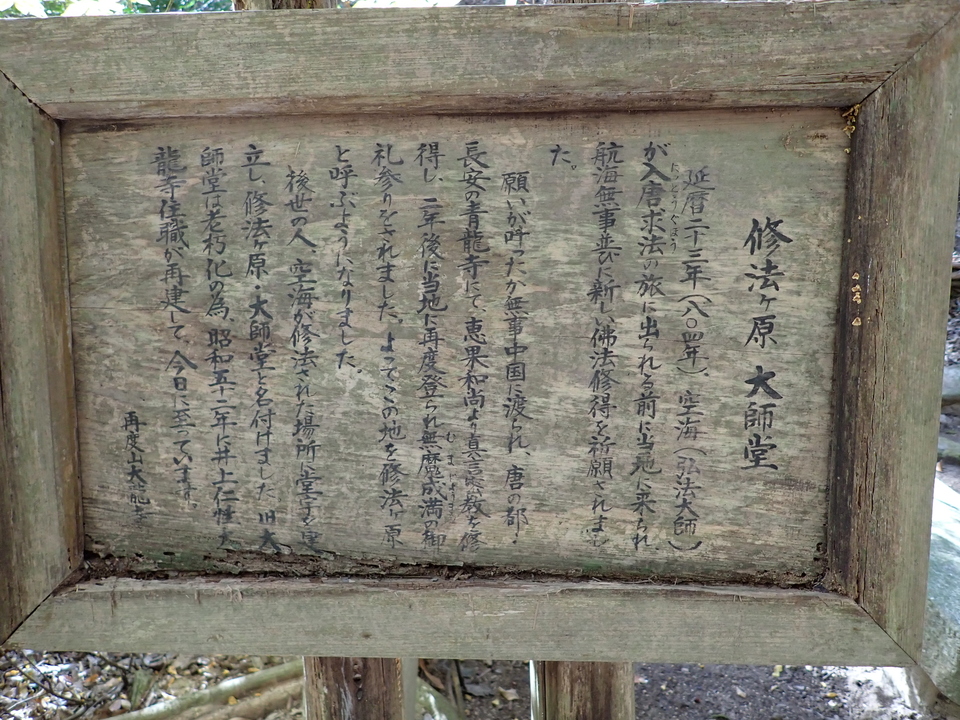 修法ヶ原 大師堂
延暦二十三年(八〇四年)、空海(弘法大師)
が入唐求法の旅に出られる前に当地に来られ、
にっとうぐほう
航海無事並びに新しい佛法修得を祈願されまし
た。
願いが叶ったか無事中国に渡られ、唐の都・
長安の青龍寺にて、恵果和尚より真言密教を修
得し、二年後に当地に再度登られ無魔成満の御
むまじょうまん
礼参りをされました。よってこの地を修法ヶ原
と呼ぶようになりました。
後世の人、空海が修法された場所に堂宇を建
立し、修法ヶ原・大師堂と名付けました。旧大
師堂は老朽化の為、昭和五十二年に井上仁性大
龍寺住職が再建して、今日に至っています。
再度山大龍寺